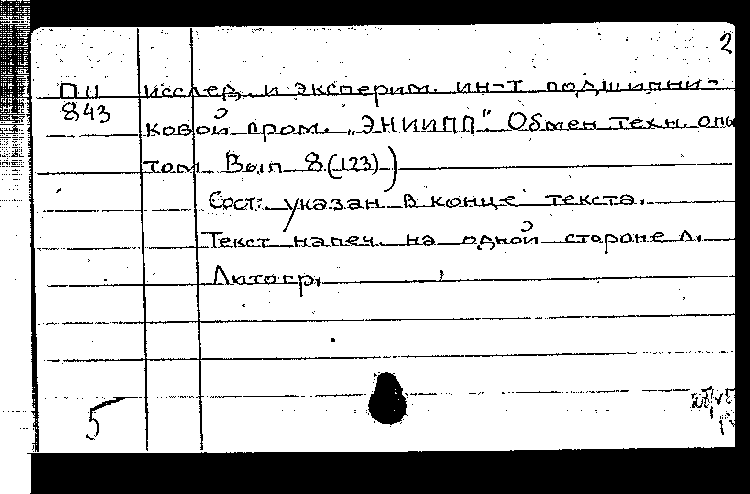 2
ПН исслед. и эксперим. ин-т подшипни-
843 ковой пром. „ЭНИИПП". Обмен техн. опы
том Вып 8.(123))
Сост. указан в конце текста.
Текст напеч. на одной стороне л.
Литогр.
5